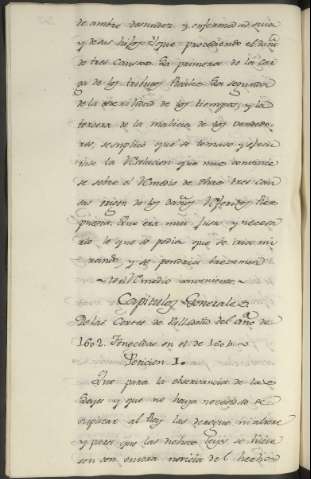 de ambre desnudez y enfermedad suia
y de sus hijos Y que procediendo el daño
de tres Causas La primera de la Car
ga de los tributos Reales La segunda
de la esterilidad de los tiempos, y la
tercera de la malicia de los vendedo
res, se suplicó que se tomase y
se la Relacion que mas conviniese
se sobre el Remedio de estas tres cau
sas origen de los daños
Que era mui justo y necesa
rio lo que se pedia que se iria mi
rando, y se pondria brevemen
te el Remedio conveniente
Capitulos Generales
De las Cortes de Valladolid del año de
1602. fenecidas en el de 1604
Peticion 1.
Que para la observancia de las
Leyes y que no haya necesidad de
suplicar al Rey las derogue ni altere
y pues que las dichas Leyes se hicie
son con entera noticia del hecho